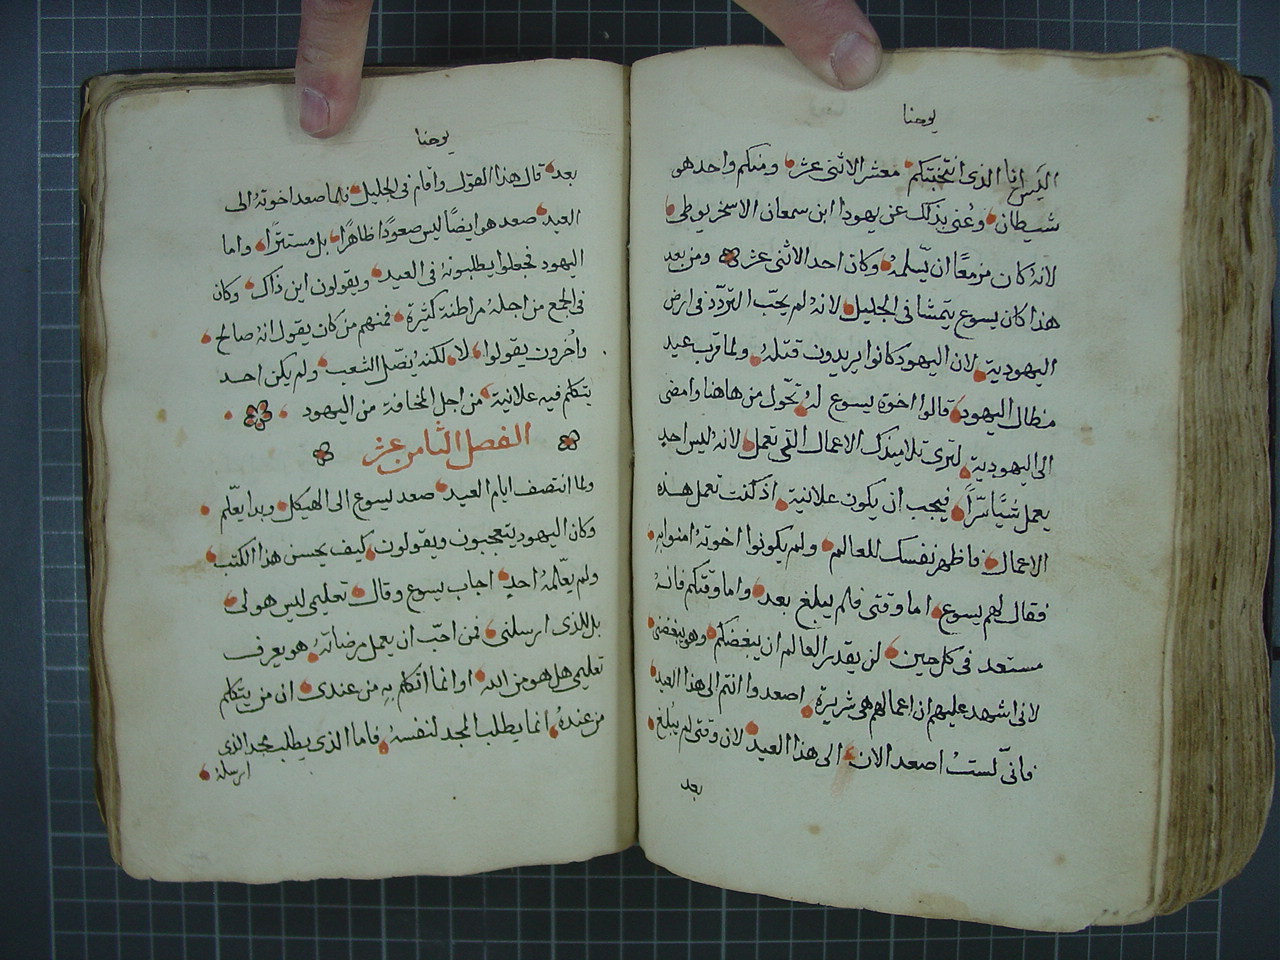 يوحنا
اليس انا الذى انتخبتكم معشر الاثنى عشر ومنكم واحد هو
شيطان وعُنى بذلك عن يهودا ابن سمعان الاسخريوطى
لانهُ كان مزمعًا ان يسّلمهُ وكان احد الاثنى عشر ومن بعد
هذا كان يسوع يتمشا فى الجليل لانهُ لم يحبّ التردّد فى ارض
اليهودية لان اليهود كانوا يريدون قتلهُ ولما قرب عيد
مظال اليهود قالوا اخوة يسوع لهُ تحّول من هاهنا وامضى
الى اليهودية لترى تلاميذك الاعمال التى تعمل لانهُ ليس احد
يعمل شيًا سّرًا فيجب ان يكون علانية اذ كنت تعمل هذه
الاعمال فاظهر نفسك للعالم ولم يكونوا اخوتهُ امنوا بهِ
فقال لهم يسوع اما وقتى فلم يبلغ بعد واما وقتكم فانهُ
مستعد فى كل حين لن يقدر العالم ان يبغضكم وهو يبغضنى
لانى اشهد عليهم ان اعمالهم هى شريرة اصعدوا انتم الى هذا العيد
فانىّ لستُ اصعد الان الى هذا العيد لان وقتى لم يُبلغ
بعد
يوحنا
بعد قال هذا القول واقام فى الجليل فلما صعد اخوتهُ الى
العيد صعد هو ايضًا ليس صعودًا ظاهرًا بل مستترًا واما
اليهود فجعلوا يطلبونهُ فى العيد ويقولون اين ذاك وكان
فى الجمع من اجلهُ مراطنة كثيرة فمنهم من كان يقول انهُ صالح
واخرون يقولوا لا لكنهُ يُضّل الشعب ولم يكن احد
يتكلم فيه علانية من اجل المخافة من اليهود
الفصل الثامن عشر
ولما انتصف ايام العيد صعد يسوع الى الهيكل وبدا يعّلم
وكان اليهود يتعجبون ويقولون كيف يحسن هذا الكتب
ولم يعّلمهُ احد اجاب يسوع وقال تعليمى ليس هو لى
بل للذى ارسلنى فمن احبّ ان يعمل مرضاتهُ هو يعرف
تعليمى هل هو من الله او انما اتكلم بهِ من عندى ان من يتكلم
من عندهُ انما يطلب المجد لنفسهُ فاما الذى يطلب مجد الذى
ارسلهُ